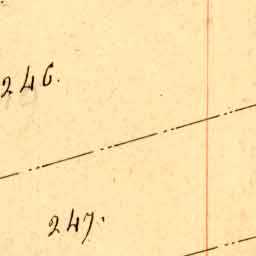 246.
247.